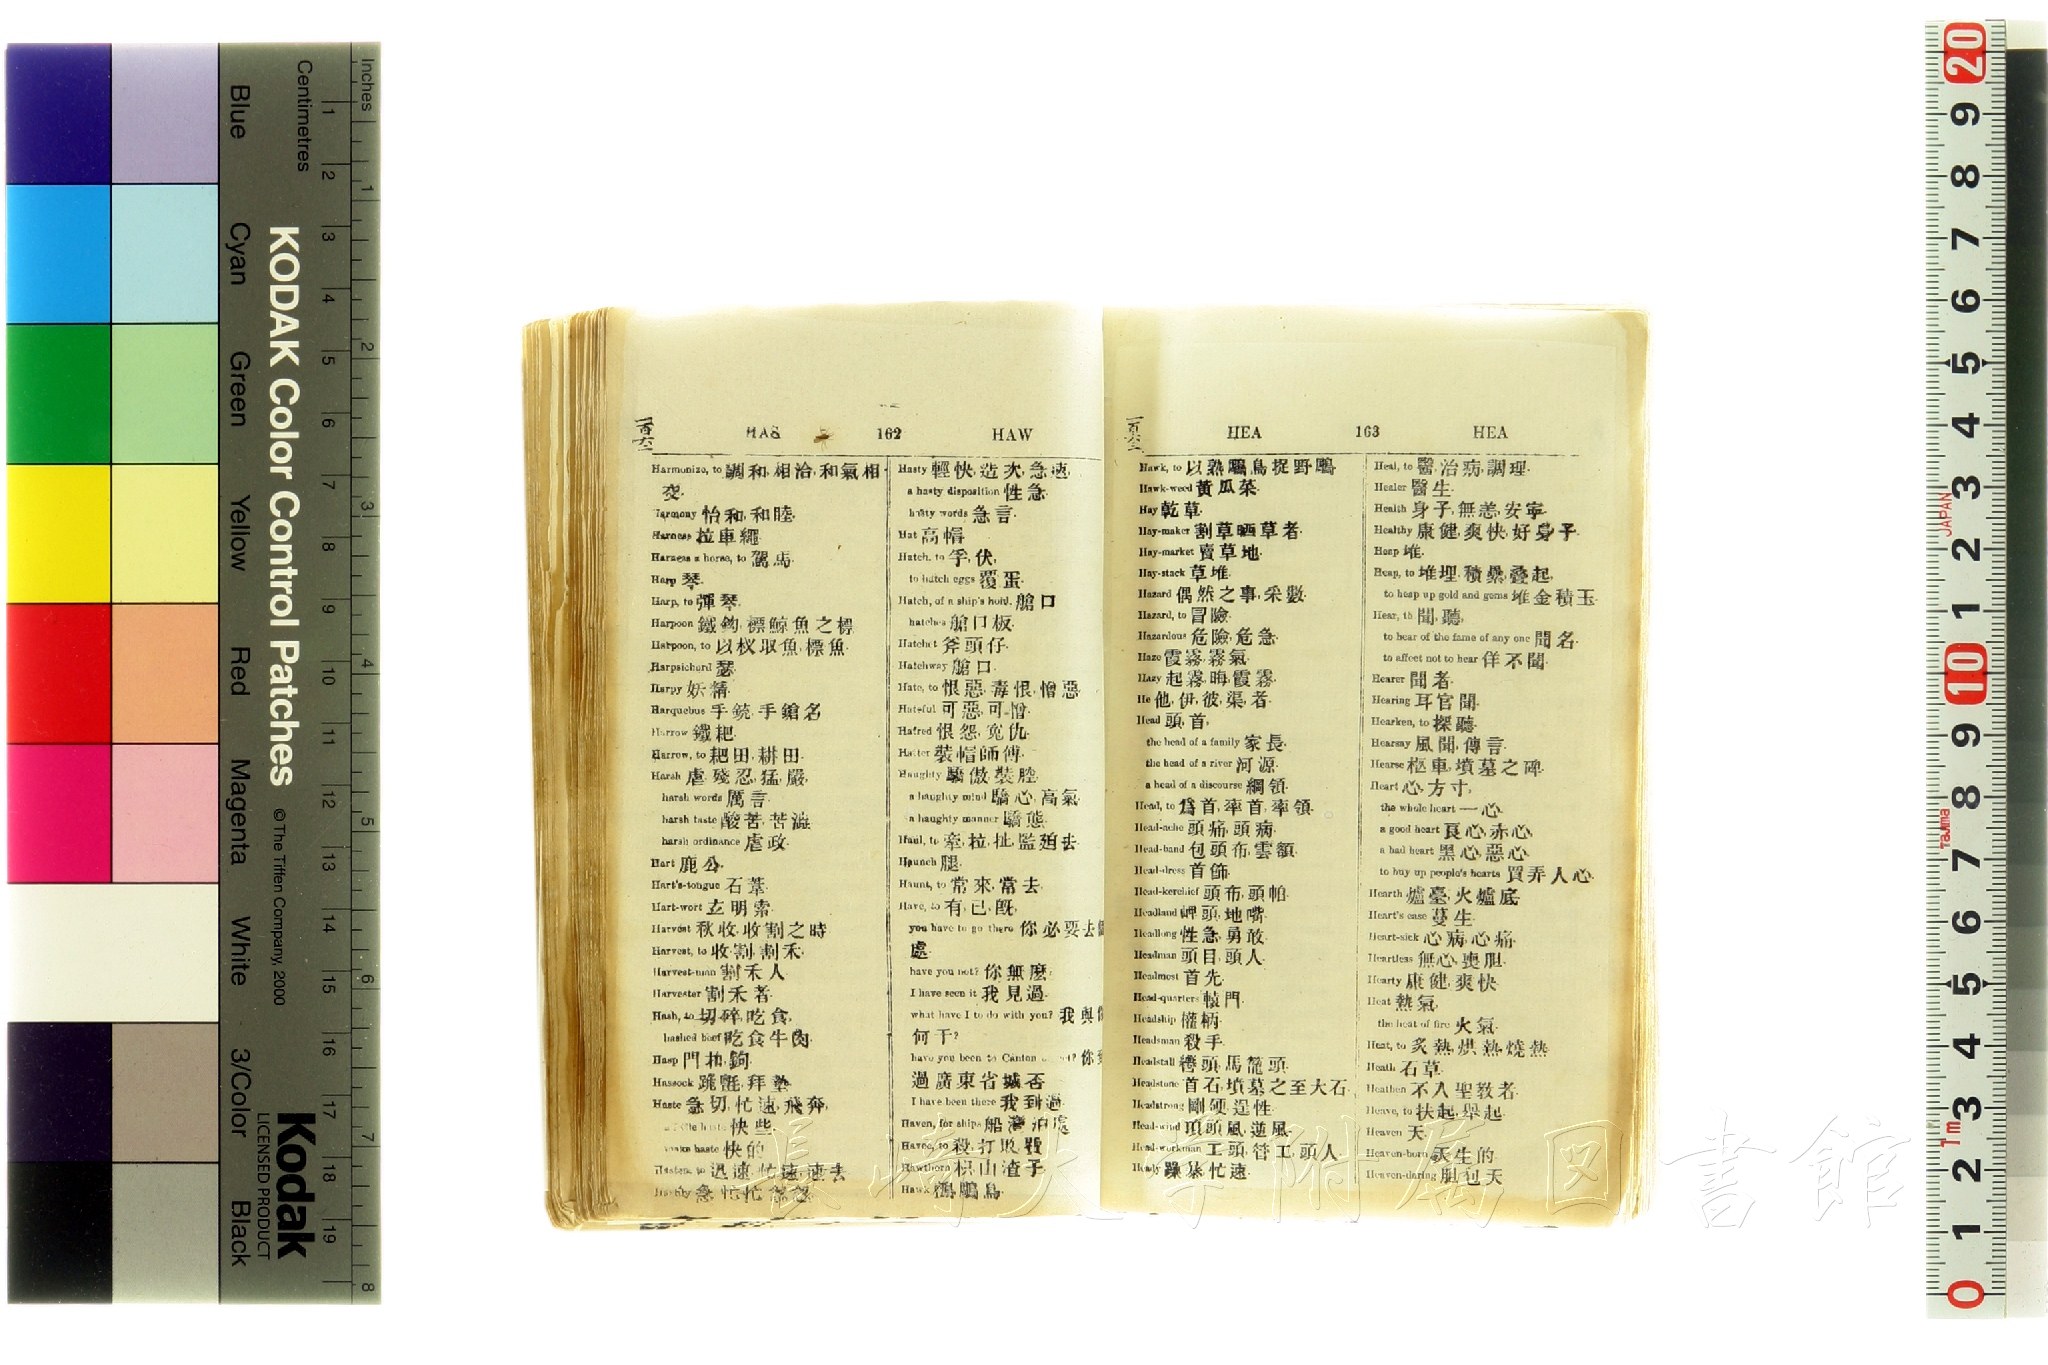 Blue
Cyan
Green
Yellow
Red
Magenta
White
3/Color
Black
Centimetres
Inches
KODAK Color Control Patches
© The Tiffen Company, 2000
Kodak
LICENSED PRODUCT
HAS 162 HAW
Harmonize, to 調和, 相洽, 和氣相
交.
Harmony 怡和, 和睦.
Harness 拉車繩.
Harness a horse, to 駕馬.
Harp 琴.
Harp, to 彈琴.
Harpoon 鐵鈎, 標鯨魚之標
Harpoon, to 以杈取魚, 標魚.
Harpsichord 瑟.
Harpy 妖精.
Harquebus 手銃, 手鎗名
Harrow 鐵耙.
Harrow, to 耙田, 耕田.
Harsh 虐, 殘忍, 猛, 嚴.
harsh words 厲言.
harsh taste 酸苦, 苦澁.
harsh ordinance 虐政.
Hart 鹿公.
Hart's-tongue 石葦.
Hart-wort 玄明索.
Harvest 秋收, 收割之時
Harvest, to 收割, 割禾.
Harvest-man 割禾人.
Harvester 割禾者.
Hash, to 切碎, 吃食.
hashed beef 吃食牛肉.
Hasp 門
Hassock 跪氈, 拜墊.
Haste 急切, 忙速, 飛奔.
快些.
make haste 快的
Hasten, to 迅速, 忙速, 速去
急忙
Hasty 輕快, 造次, 急速.
a hasty disposition 性急.
hasty words 急言.
Hat 高帽
Hatch, to 孚, 伏,
to hatch eggs 覆蛋.
Hatch, of a ship's hold, 艙口
hatches 艙口板.
Hatchet 斧頭仔.
Hatchway 艙口.
Hate, to 恨惡, 毒恨, 憎惡
Hateful 可惡, 可憎.
Hatred 恨怨, 冤仇.
Hatter 裝帽師傅.
Haughty 驕傲, 裝腔.
a haughty mind 驕心, 高氣.
a haughty manner 驕態.
Haul, to 牽, 拉, 扯,
Haunch 腿.
Haunt, to 常來, 常去.
Have, to 有, 已, 旣,
you have to go there 你必要去
處.
have you not? 你無麼.
I have seen it 我見過.
what have I to do with you? 我與
何干?
have you been to Canton 你
過廣東省城否
I have been there 我到過
Haven, for ships 船灣泊處
Havoc, to 殺, 打敗
Hawthorn 山渣子
Hawk 鴟鳥.
HEA 163 HEA
Hawk, to 以熟鴟鳥捉野鴟
Hawk-weed 黃瓜菜.
Hay 乾草.
Hay-maker 割草晒草者.
Hay-market 賣草地.
Hay-stack 草堆.
Hazard 偶然之事, 采數.
Hazard, to 冒險.
Hazardous 危險, 危急.
Haze 霞霧, 霧氣.
Hazy 起霧, 晦, 霞霧.
He 他, 伊, 彼, 渠, 者.
Head 頭, 首,
the head of a family 家長.
the head of a river 河源.
a head of a discourse 綱領.
Head, to 爲首, 率首, 率領.
Head-ache 頭痛, 頭病.
Head-band 包頭布, 雲額.
Head-dress 首飾.
Head-kerchief 頭布, 頭帕.
Headland 岬頭, 地嘴.
Headlong 性急, 勇敢.
Headman 頭目, 頭人.
Headmost 首先.
Head-quarters 轅門.
Headship 權柄.
Headsman 殺手.
Headstall 轡頭, 馬籠頭.
Headstone 首石, 墳墓之至大石.
Headstrong 剛硬, 逞性.
Head-wind 頂頭風, 逆風.
Head-workman 工頭, 管工, 頭人.
Heady 躁暴, 忙速.
Heal, to 醫, 治病, 調理.
Healer 醫生.
Health 身子, 無恙, 安寧.
Healthy 康健, 爽快, 好身子.
Heap 堆.
Heap, to 堆埋, 積纍, 疊起,
to heap up gold and gems 堆金積玉.
Hear, to 聞, 聽,
to hear of the fame of any one 聞名.
to affect not to hear 佯不聞.
Hearer 聞者.
Hearing 耳官, 聞.
Hearken, to 探聽.
Hearsay 風聞, 傳言.
Hearse 柩車, 墳墓之碑.
Heart 心, 方寸,
the whole heart 一心.
a good heart 良心, 赤心.
a bad heart 黑心, 惡心.
to buy up people's hearts 買弄人心.
Hearth 爐臺, 火爐底.
Heart's ease 蔓生.
Heart-sick 心病, 心痛.
Heartless 無心, 喪胆.
Hearty 康健, 爽快.
Heat 熱氣,
the heat of fire 火氣.
Heat, to 炙熱, 烘熱, 燒熱
Heath 石草.
Heathen 不入聖敎者.
Heave, to 扶起, 舉起.
Heaven 天.
Heaven-born 天生的
Heaven-daring 胆包天
長崎大学附属図書館
JAPAN
Tajima
1m